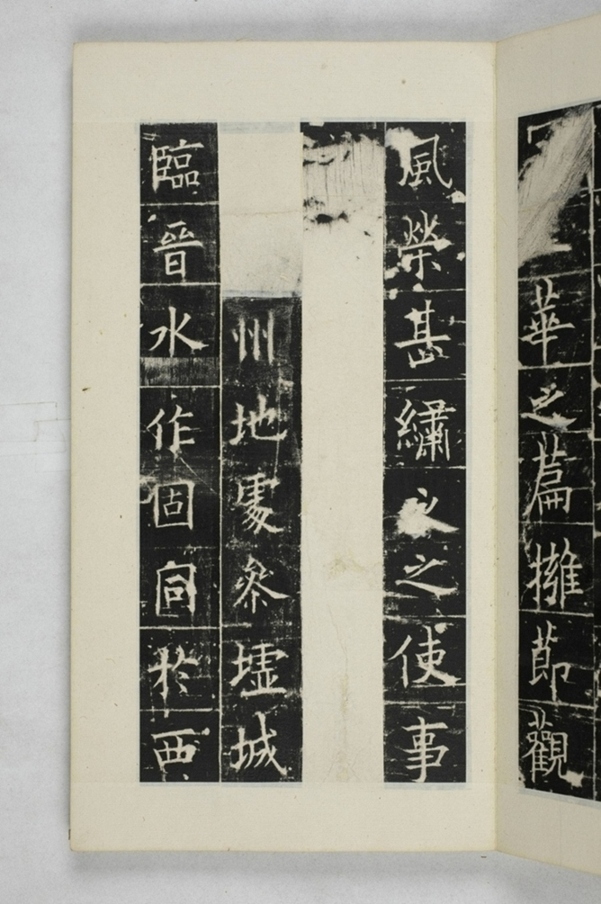 華之篇擁節觀
風榮甚繡衣之使事
州地處參墟城
臨晉水作固同於西